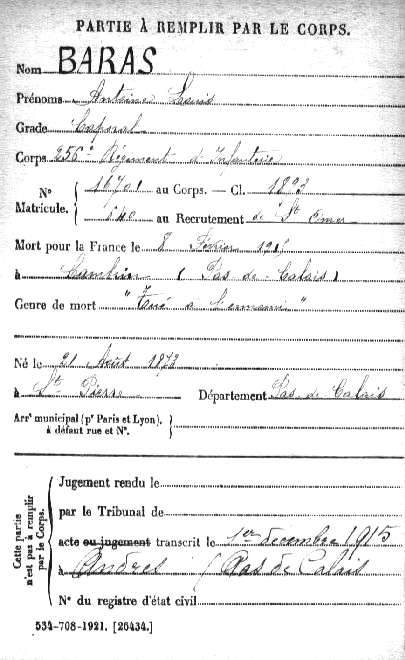 PARTIE À REMPLIR PAR LE CORPS.
Nom BARAS
Prénoms Antoine Louis
Grade Caporal
Corps 256e Régiment d'Infanterie
N° Matricule. { 16701 au Corps. — Cl. 1893
640 au Recrutement de St Omer
Mort pour la France le Février 1915
à Cambrin (Pas de Calais)
Genre de mort "Tué à l'ennemi"
Né le 21 Août 1873
à St Pierre Département Pas de Calais
Arrt municipal (pr Paris et Lyon), à défaut rue et N°. }
Cette partie n'est pas à remplir par le Corps.
Jugement rendu le
par le Tribunal de
acte ou jugement transcrit le 1er décembre 1915
à Andres (Pas de Calais
N° du registre d'état civil
534-708-1921. [26434.]